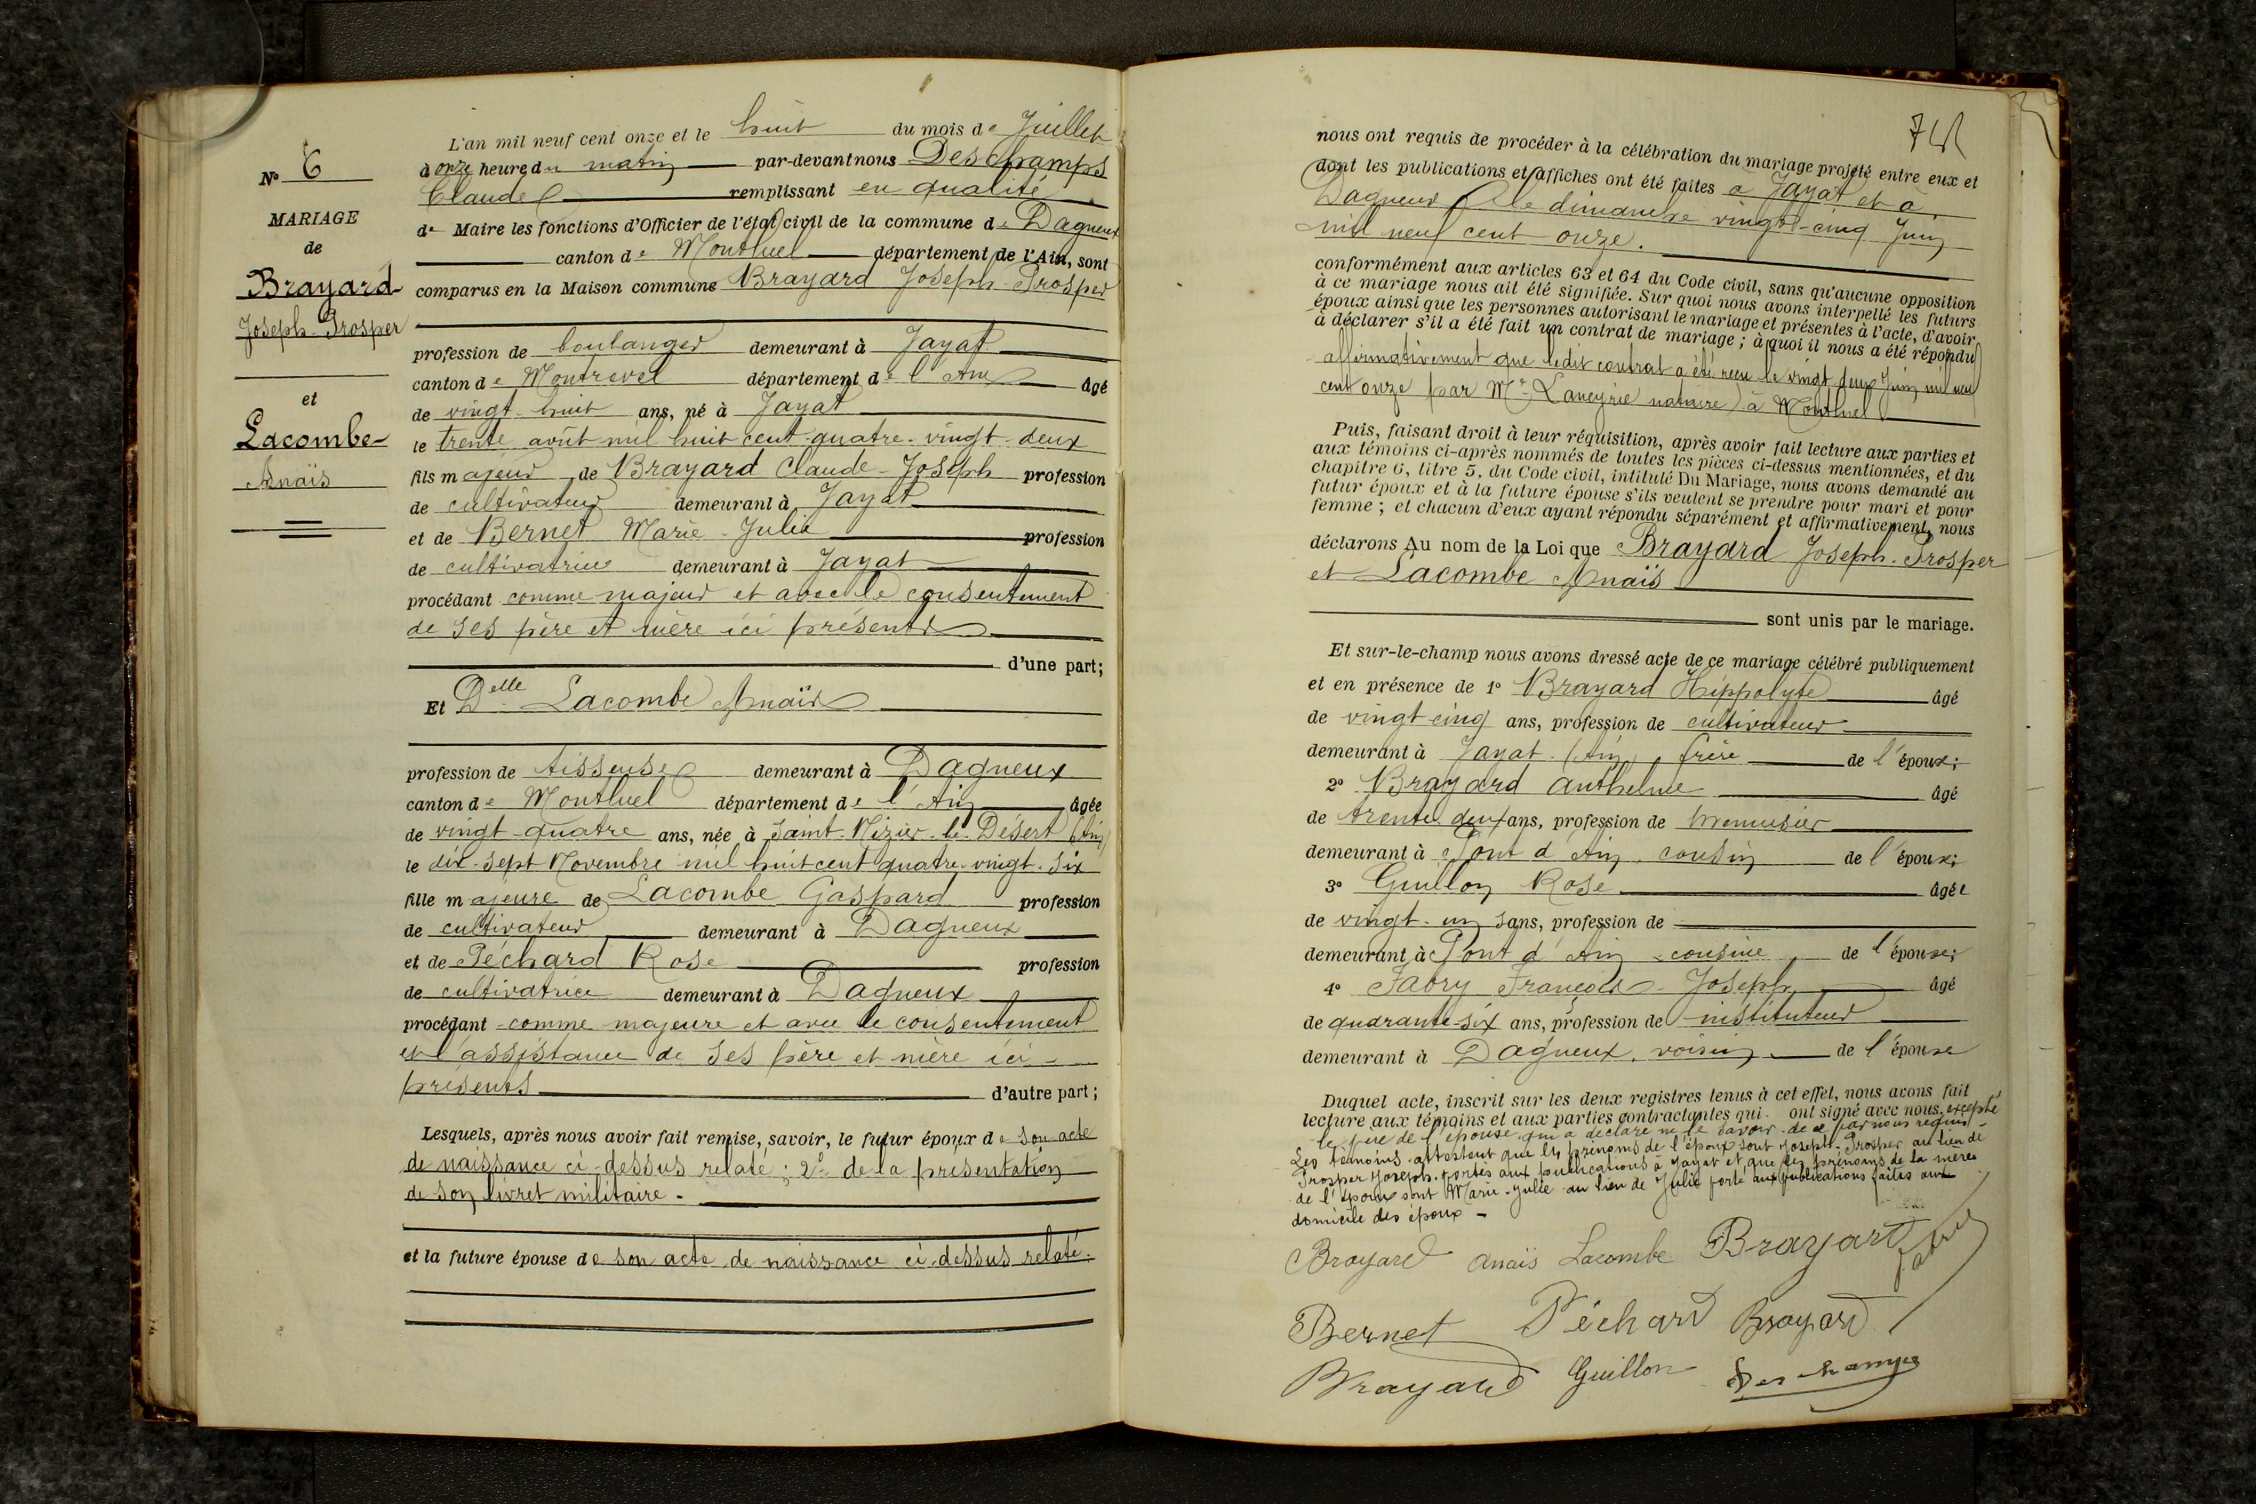 N° 6
MARIAGE
de
Brayard
Joseph-Prosper
et
Lacombe
Anaïs
L'an mil neuf cent onze et le huit du mois de Juillet
à onze heure du matin par-devant nous Deschamps
Claude remplissant en qualité
de Maire les fonctions d'Officier de l'état civil de la commune de Dagneux
canton de Montluel département de l'Ain, sont
comparus en la Maison commune Brayard Joseph-Prosper
profession de boulanger demeurant à Jayat
canton de Montrevel département de l'Ain âgé
de vingt-huit ans, né à Jayat
le trente août mil huit cent quatre-vingt-deux
fils majeur de Brayard Claude-Joseph profession
de cultivateur demeurant à Jayat
et de Bernet Marie-Julie profession
de cultivatrice demeurant à Jayat
procédant comme majeur et avec le consentement
de ses père et mère ici présents
d'une part;
Et Delle Lacombe Anaïs
profession de tisseuse demeurant à Dagneux
canton de Montluel département de l'Ain âgée
de vingt-quatre ans, née à Saint-Nizier-le-Désert (Ain)
le dix-sept Novembre mil huit cent quatre-vingt-six
fille majeure de Lacombe Gaspard profession
de cultivateur demeurant à Dagneux
et de Péchard Rose profession
de cultivatrice demeurant à Dagneux
procédant comme majeure et avec le consentement
et l'assistance de ses père et mère ici
présents d'autre part;
Lesquels, après nous avoir fait remise, savoir, le futur époux de son acte
de naissance ci-dessus relaté; 2° de la présentation
de son livret militaire.
et la future épouse de son acte de naissance ci-dessus relaté.
nous ont requis de procéder à la célébration du mariage projeté entre eux et
dont les publications et affiches ont été faites à Jayat et à
Dagneux le dimanche vingt-cinq Juin
mil neuf cent onze.
conformément aux articles 63 et 64 du Code civil, sans qu'aucune opposition
à ce mariage nous ait été signifiée. Sur quoi nous avons interpellé les futurs
époux ainsi que les personnes autorisant le mariage et présentes à l'acte, d'avoir
à déclarer s'il a été fait un contrat de mariage; à quoi il nous a été répondu
affirmativement que ledit contrat a été reçu le vingt-deux Juin mil neuf
cent onze par Mr Laneyrie notaire à Montluel
Puis, faisant droit à leur réquisition, après avoir fait lecture aux parties et
aux témoins ci-après nommés de toutes les pièces ci-dessus mentionnées, et du
chapitre 6, titre 5, du Code civil, intitulé Du Mariage, nous avons demandé au
futur époux et à la future épouse s'ils veulent se prendre pour mari et pour
femme; et chacun d'eux ayant répondu séparément et affirmativement, nous
déclarons Au nom de la Loi que Brayard Joseph-Prosper
et Lacombe Anaïs
sont unis par le mariage.
Et sur-le-champ nous avons dressé acte de ce mariage célébré publiquement
et en présence de 1° Brayard Hippolyte âgé
de vingt-cinq ans, profession de cultivateur
demeurant à Jayat (Ain), frère de l'époux;
2° Brayard Anthelme âgé
de trente-deux ans, profession de menuisier
demeurant à Pont d'Ain, cousin de l'époux;
3° Guillon Rose âgée
de vingt-un ans, profession de
demeurant à Pont d'Ain, cousine de l'épouse;
4° Fabry François-Joseph âgé
de quarante-six ans, profession de instituteur
demeurant à Dagneux, voisin de l'épouse
Duquel acte, inscrit sur les deux registres tenus à cet effet, nous avons fait
lecture aux témoins et aux parties contractantes qui ont signé avec nous, excepté
le père de l'épouse qui a déclaré ne le savoir de ce par nous requis
Les témoins attestent que les prénoms de l'époux sont Joseph-Prosper au lieu de
Prosper Joseph portés aux publications à Jayat et que les prénoms de la mère
de l'époux sont Marie-Julie au lieu de Julie porté aux publications faites aux
domicile des époux -
Brayard Anaïs Lacombe Brayard Fabry
Bernet Péchard Brayard
Brayard Guillon Deschamps